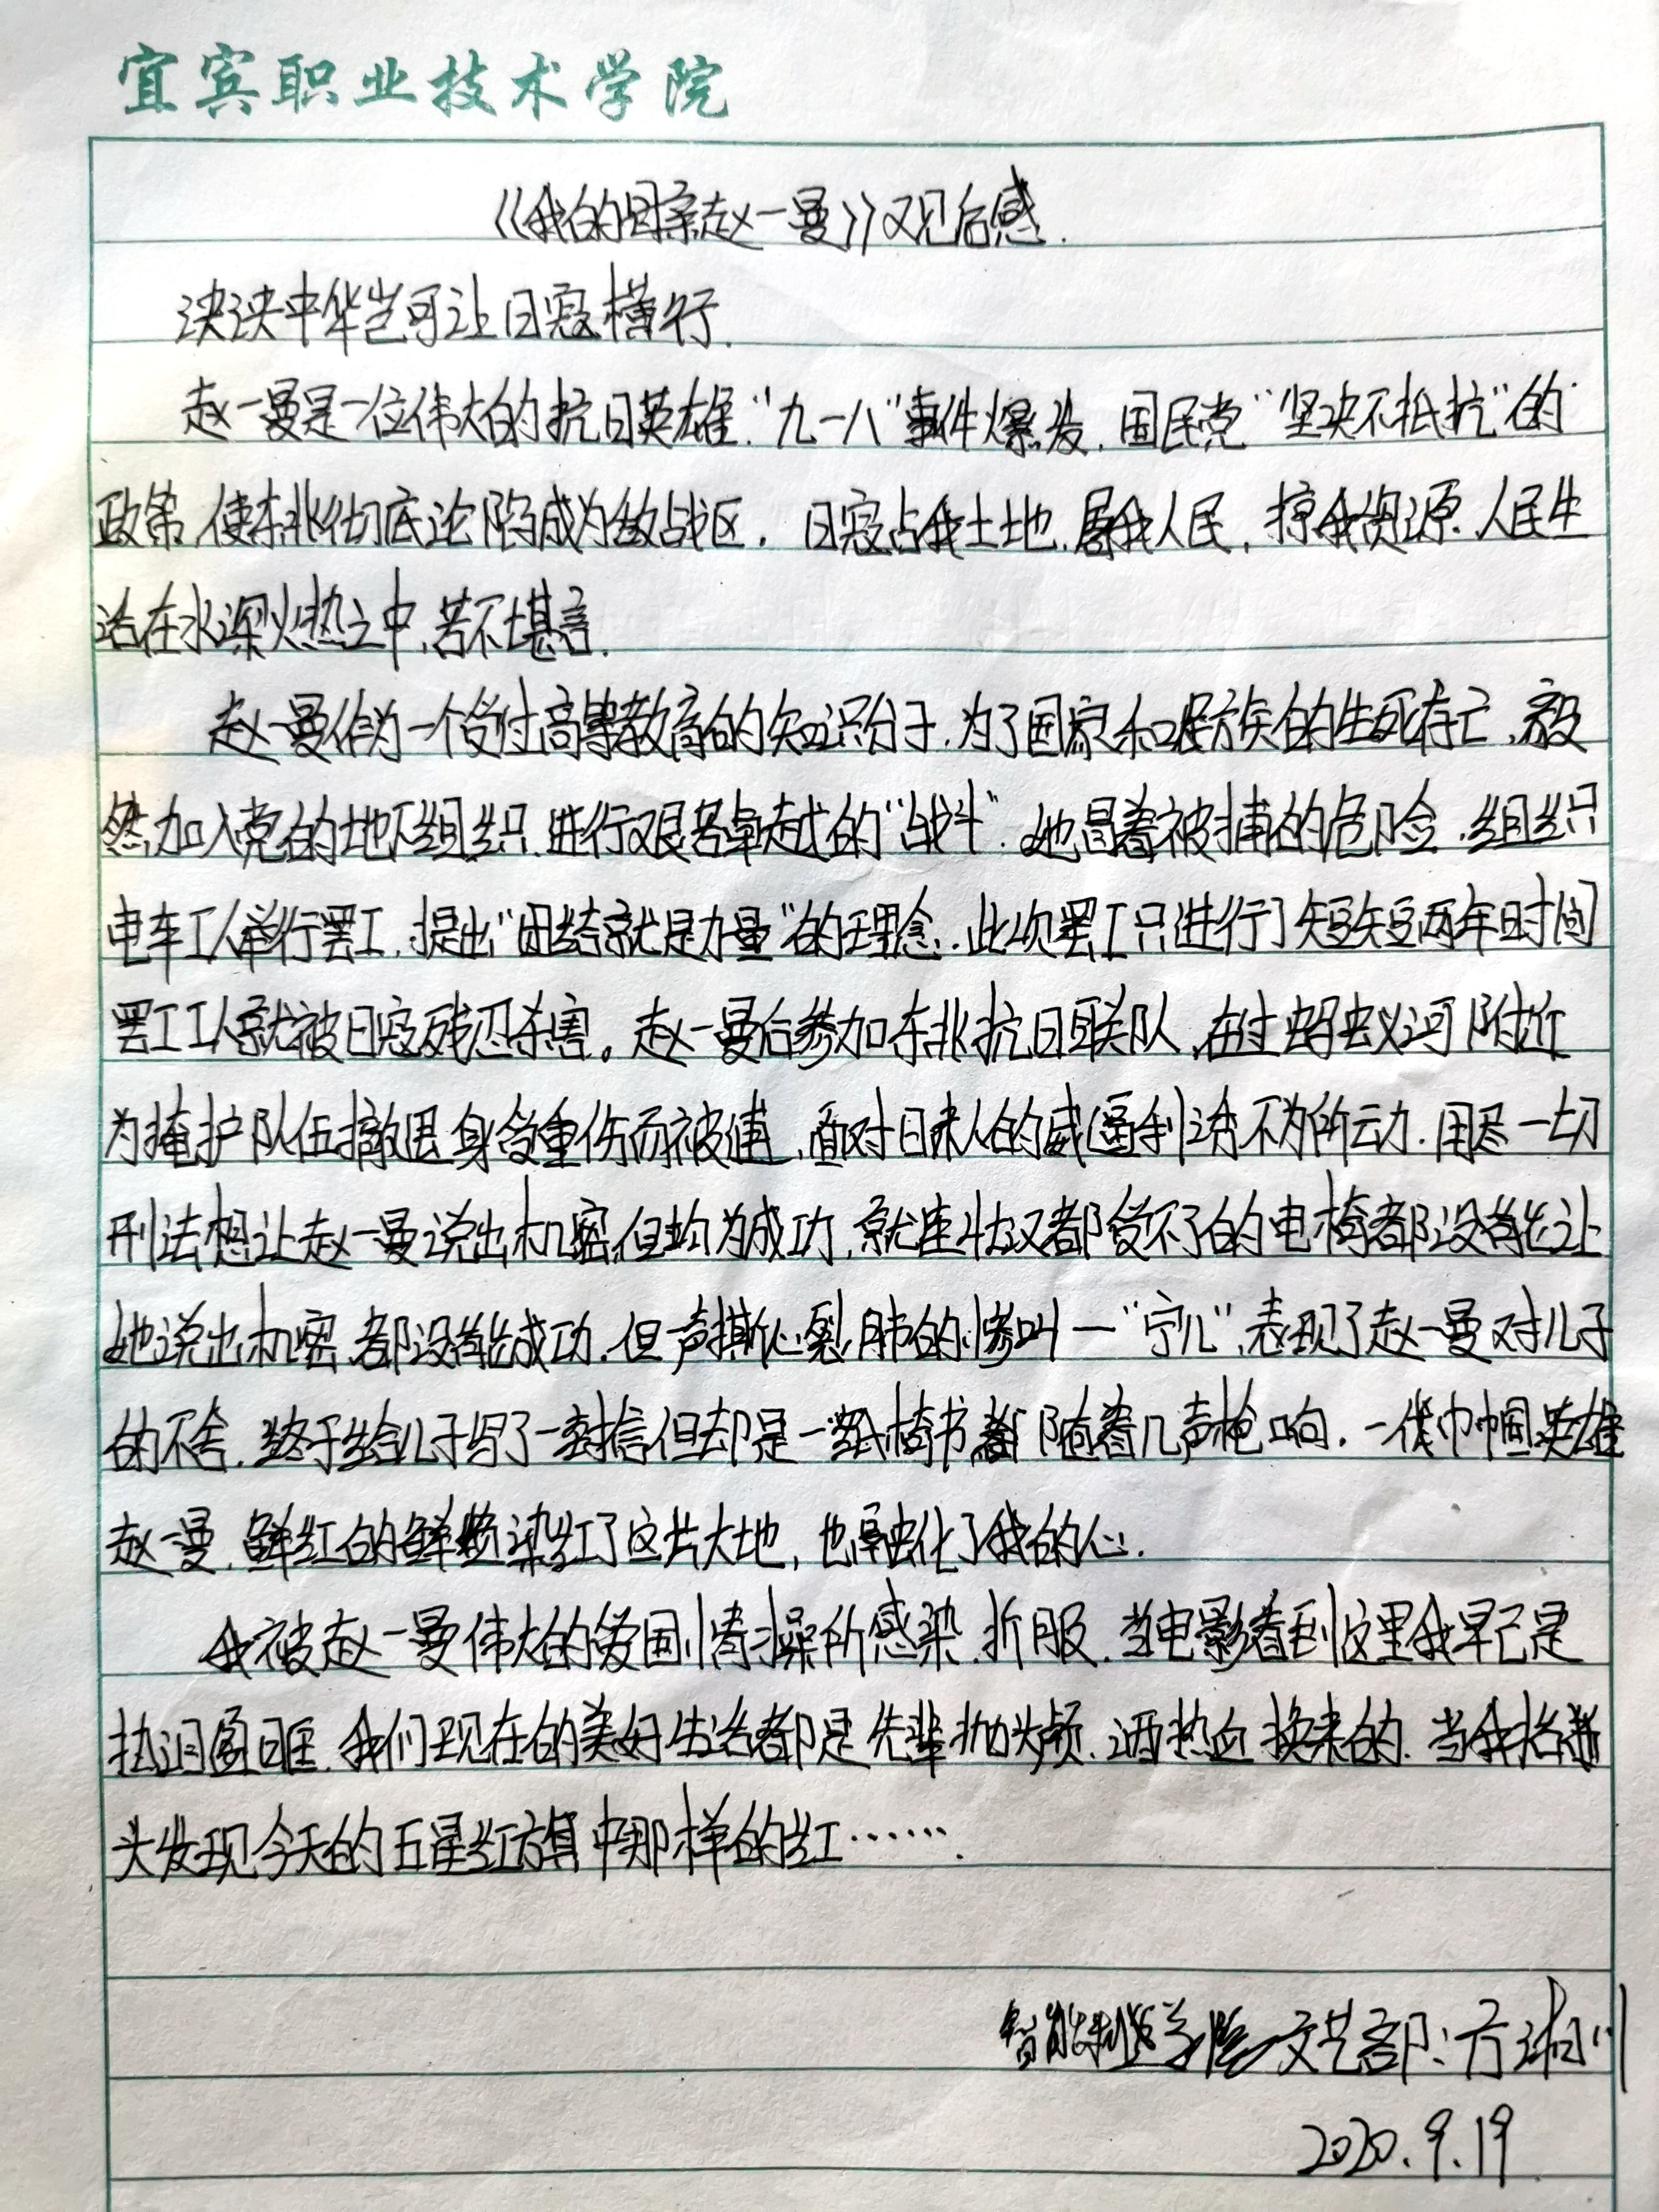 宜宾职业技术学院
《我的母亲赵一曼》观后感.
泱泱中华岂可让日寇横行.
赵一曼是一位伟大的抗日英雄."九一八"事件爆发,国民党"坚决不抵抗"的
政策,使东北彻底沦陷成为敌战区.日寇占我土地,屠我人民,掠我资源.人民生
活在水深火热之中,苦不堪言.
赵一曼作为一个受过高等教育的知识分子,为了国家和民族的生死存亡,毅
然加入党的地下组织.进行艰苦卓越的"战斗".她冒着被捕的危险.组织
电车工人举行罢工,提出"团结就是力量"的理念.此次罢工只进行了短短两年时间
罢工工人就被日寇残忍杀害。赵一曼后参加东北抗日联队,在过蚂蚁河附近
为掩护队伍撤退身受重伤而被逮,面对日本人的威逼利诱不为所动.用尽一切
刑法想让赵一曼说出机密,但均为成功,就连壮汉都受不了的电椅都没有能让
她说出机密.都没有能成功.但一声撕心裂肺的惨叫一"宁儿",表现了赵一曼对儿子
的不舍.终于给儿子写了一封信但却是一纸 书 随着几声枪响.一代巾帼英雄
赵一曼.鲜红的鲜 染红了这片大地,也融化了我的心.
我被赵一曼伟大的爱国情操所感染.折服.当电影看到这里我早已是
热泪盈眶.我们现在的美好生活都是先辈抛头颅.洒热血换来的.当我抬
头发现今天的五星红旗中那样的红…….
智能制造学院文艺部:方湘川
2020.9.19